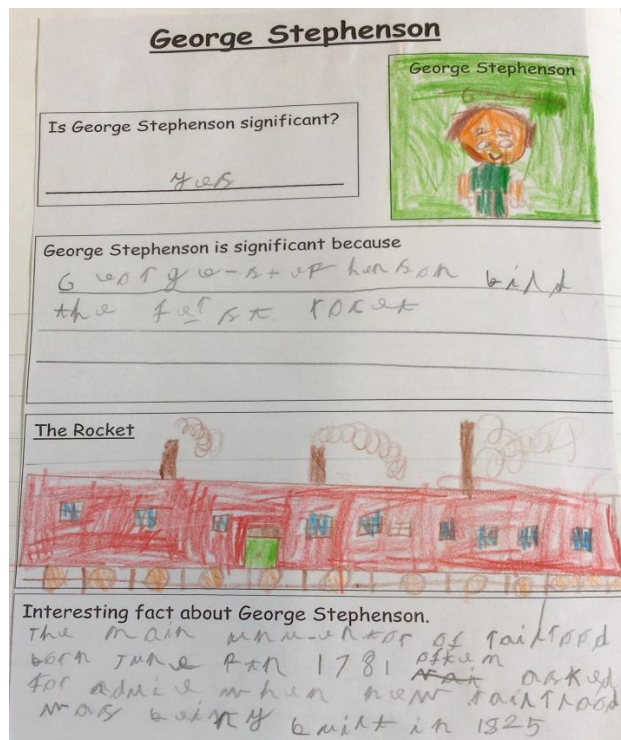 George Stephenson
George Stephenson
Is George Stephenson significant?
yes
George Stephenson is significant because
George-stephenson bild
the ferst rocet
The Rocket
Interesting fact about George Stephenson.
The main of railrood
born June 1781 oftem
for advice when new railrood asked
was being built in 1825